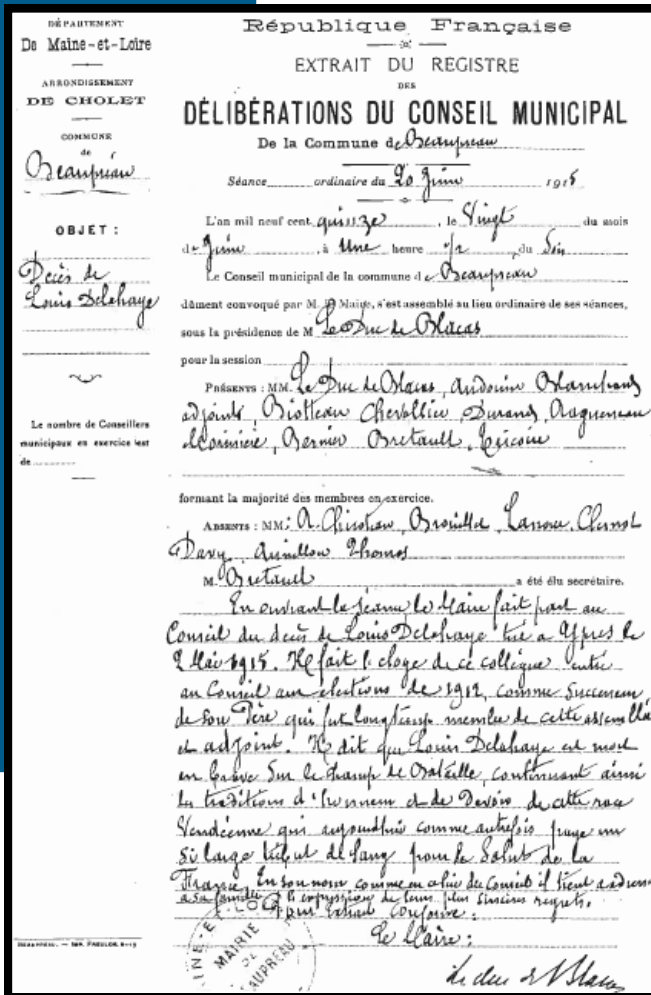 DÉPARTEMENT
De Maine-et-Loire
ARRONDISSEMENT
DE CHOLET
COMMUNE
de
Beaupréau
OBJET :
Décès de
Louis Delahaye
Le nombre de Conseillers
municipaux en exercice est
de
République Française
EXTRAIT DU REGISTRE
DES
DÉLIBÉRATIONS DU CONSEIL MUNICIPAL
De la Commune de Beaupreau
Séance ordinaire du 20 Juin 1915
L'an mil neuf cent quinze, le Vingt du mois
de Juin, à Une heure 1/2 du Soir
Le Conseil municipal de la commune de Beaupreau
dûment convoqué par M. le Maire, s'est assemblé au lieu ordinaire de ses séances,
sous la présidence de M Le Duc de Blacas
pour la session
PRÉSENTS : MM. Le Duc de Blacas, Audouin
adjoints, Biotteau Chevallier, Durand, Ragueneau
Morinière, Bernier Bretault,
formant la majorité des membres en exercice.
ABSENTS : MM. A. Brouillet, Chenot
Davy, Thomas
M. Bretault a été élu secrétaire.
En ouvrant la séance le Maire fait part au
Conseil du décès de Louis Delahaye tué a Ypres le
2 Mai 1915. Il fait l'éloge de ce collègue entré
au Conseil aux élections de 1912, comme successeur
de son Père qui fut longtemps membre de cette assemblée
et adjoint. Il dit que Louis Delahaye est mort
en brave sur le champ de Bataille, continuant ainsi
les traditions d'honneur et de Devoir de cette race
Vendéenne qui aujourdhui comme autrefois paye un
si large tribut de sang pour le Salut de la
France. En son nom comme en celui du Conseil il tient a adresser
a sa famille l'expression de leurs plus sincères regrets.
Pour extrait conforme :
Le Maire :
MAIRIE
DE
BEAUPREAU
MAINE-ET-LOIRE
le duc de Blacas